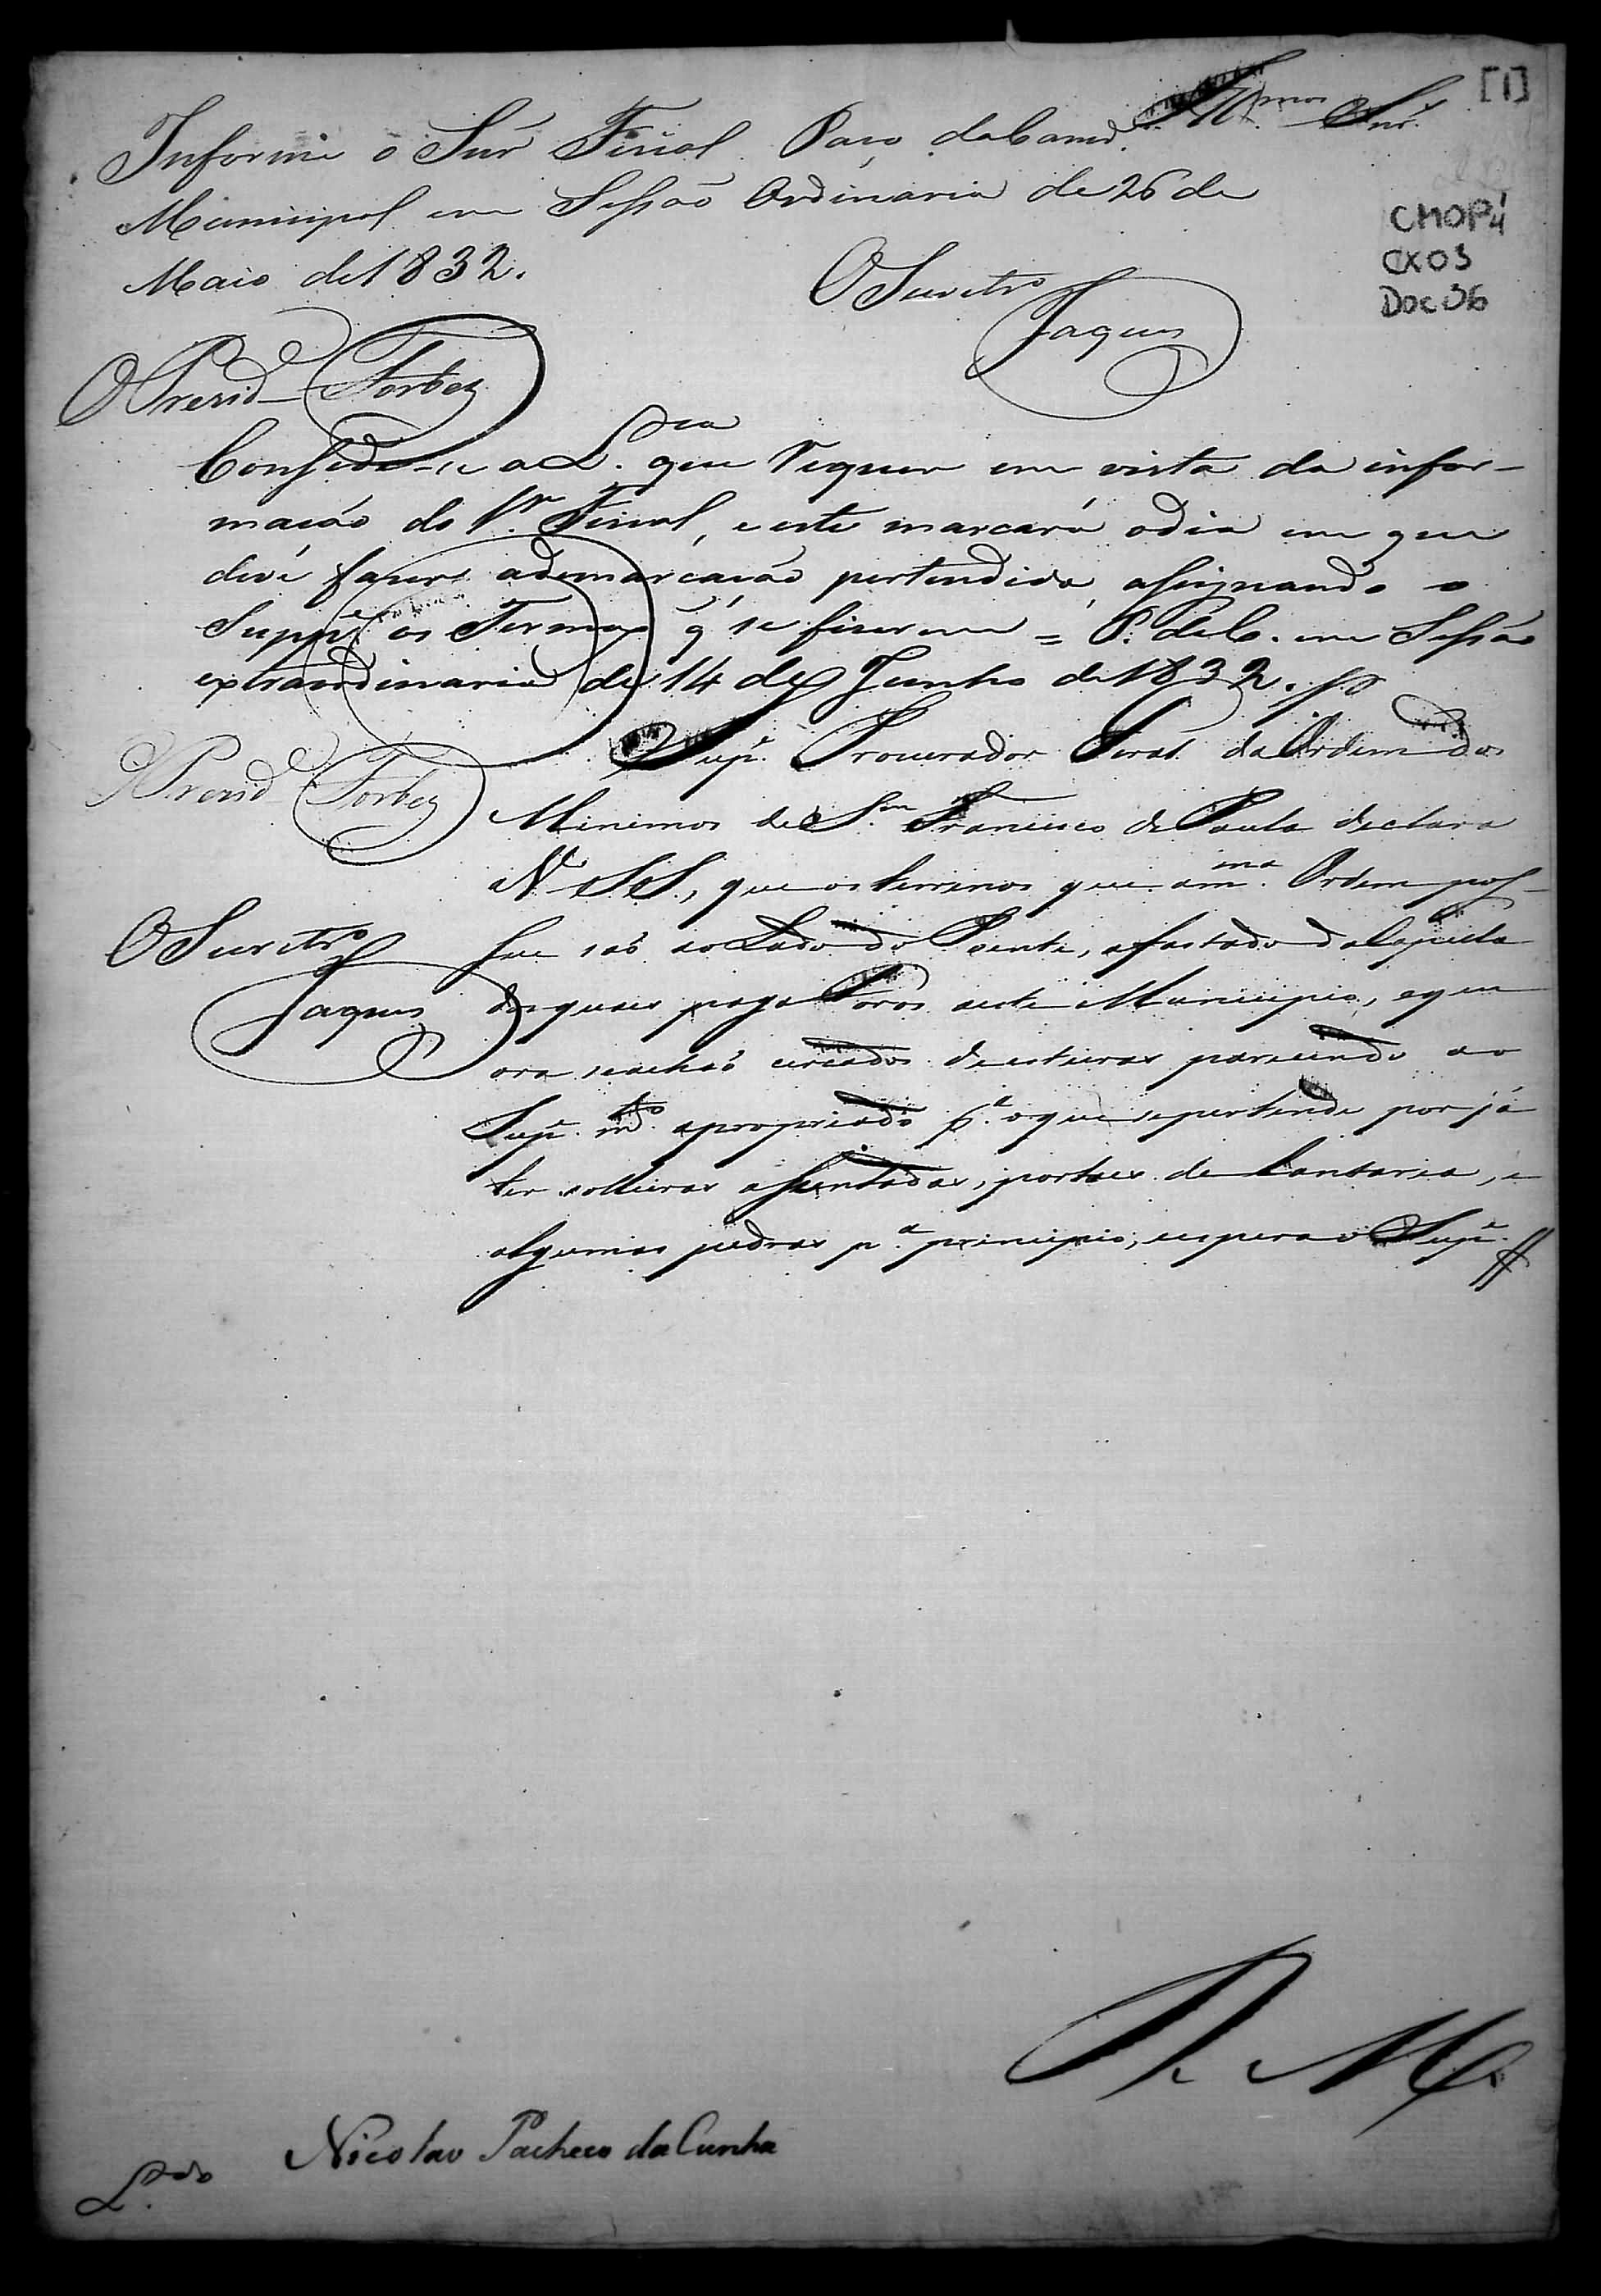 [1]
Ill.mos Snr.es
Informe o Snr Fiscal Paço da Camr.ª
Municipal em Sessão Ordinaria de 26 de
Maio de 1832.
CMOP4
CX03
Doc 36
O Secretr.º
Jaques
O Prezid.e Torbes
Consede-se a L.ça que requer em vista da infor-
mação do Sr. Fiscal, e este marcará o dia em que
deve fazer a demarcação pertendida, assignando o
Supp.e os Termos q' se fizerem = P. da C. em Sessão
extraordinaria de 14 de Junho de 1832.
O Prezid.e Torbes
O Secretr.º
Jaques
O Sup.e Procurador Geral da Ordem dos
Minimos de Sm Francisco de Paula declara
a V.S.S., que os terrenos que a m.ma Ordem pos-
sue são ao Lado do Poente, afastado da Capella
dos quaes paga Foros a este Municipio, e que
ora se achão cercados de esteiras parecendo ao
Sup.e m.to apropriado p.ª o que se pertende por já
ter solleiras assentadas, portaes de Cantaria, e
algumas pedras p.ª principio, espera o Sup.e
R. M.
Nicolao Pacheco da Cunha